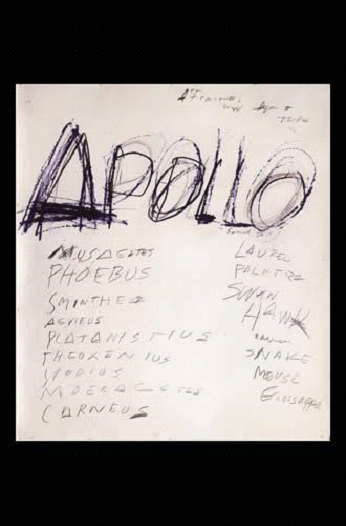 APOLLO
MUSAGETES
PHOEBUS
SMINTHEUS
AGYIEUS
PLATANISTIUS
THEOXENIUS
ISODIUS
MOERAGETES
CARNEUS
LAUREL
PALM TREE
SWAN
HAWK
SNAKE
MOUSE
GRASSHOPPER